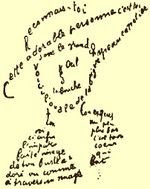 Reconnais-toi
Cette adorable personne c'est toi
Sous le grand chapeau canotier
Œil
Nez
La bouche
Voici l'ovale de ta figure
Ton cou exquis
Voici
enfin
l'impar
faite image
de ton buste a
doré vu comme
à travers un nuage
un peu
plus bas
c'est ton
cœur
qui
bat